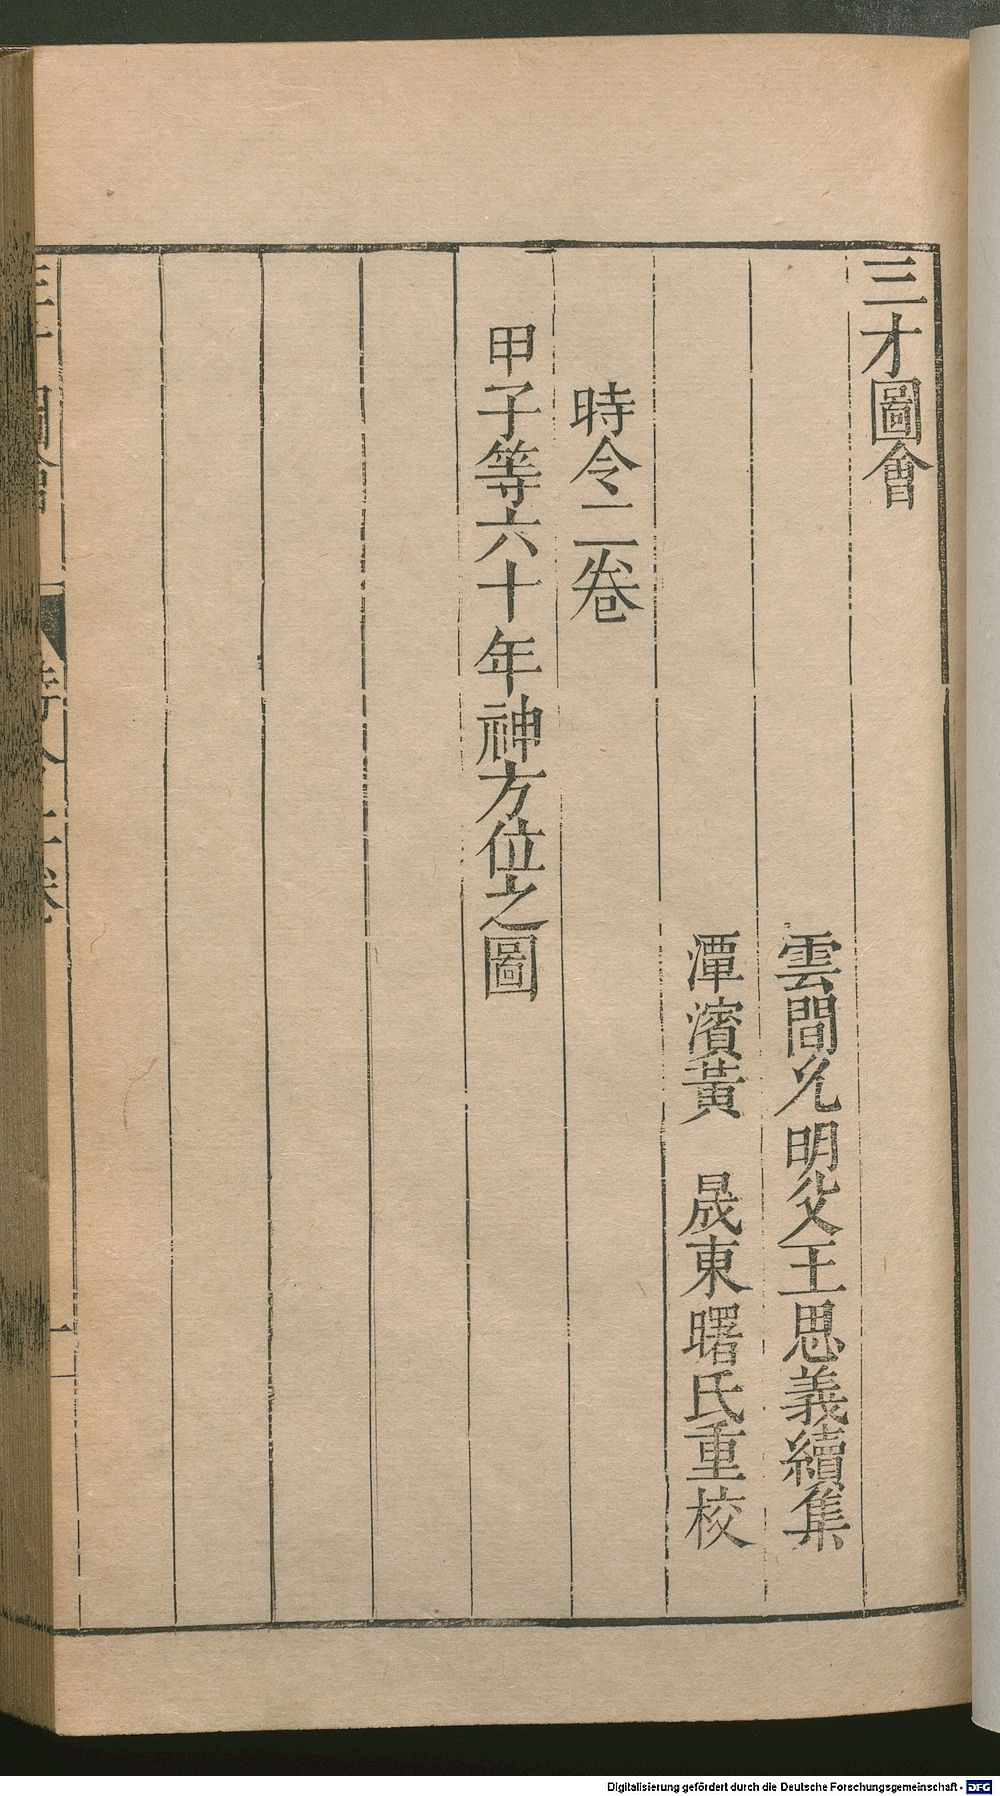 三才圖會
雲間允明父王思義續集
潭濱黃　晟東曙氏重校
時令二卷
甲子等六十年神方位之圖
三才圖會
時令二卷
一
Digitalisierung gefördert durch die Deutsche Forschungsgemeinschaft - DFG